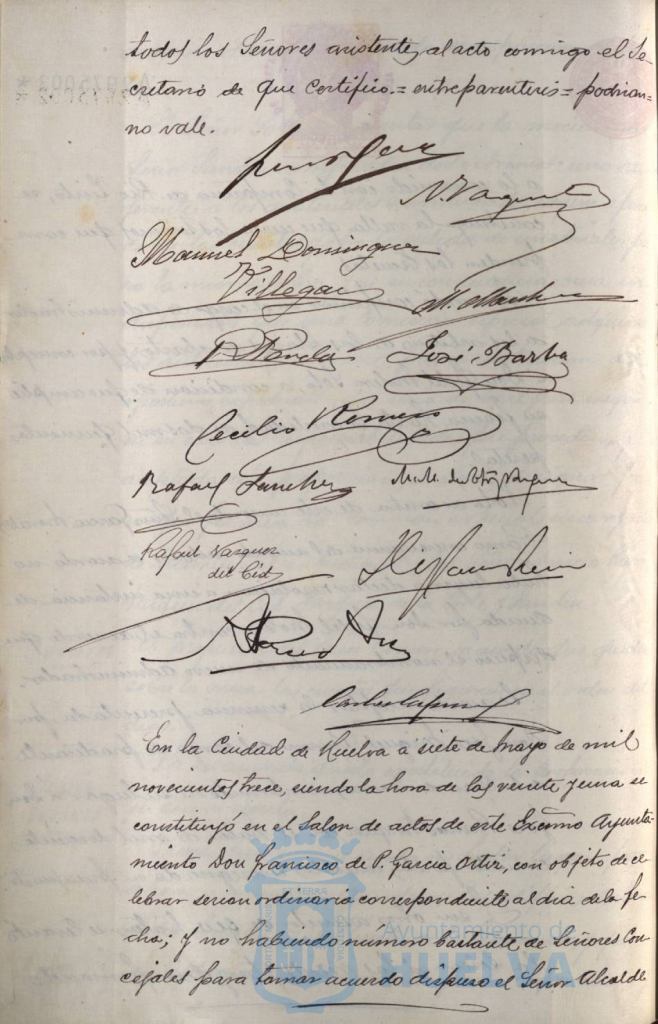 todos los Señores asistentes al acto conmigo el Se-
cretario de que certifico.= entreparentesis= podrian=
no vale.
N. Vazquez
Manuel Dominguez
Villegas
José Barba
Cecilio Romero
Rafael Sanchez
Rafael Vazquez
del Cid
En la Ciudad de Huelva a siete de Mayo de mil
novecientos trece, siendo la hora de las veinte y una se
constituyó en el Salon de actos de este Excmo Ayunta-
miento Don Francisco de P. Garcia Ortiz, con objeto de ce-
lebrar sesion ordinaria correspondiente al dia de la fe-
cha; y no habiendo número bastante de Señores Con-
cejales para tomar acuerdo dispuso el Señor Alcalde
Ayuntamiento de
HUELVA